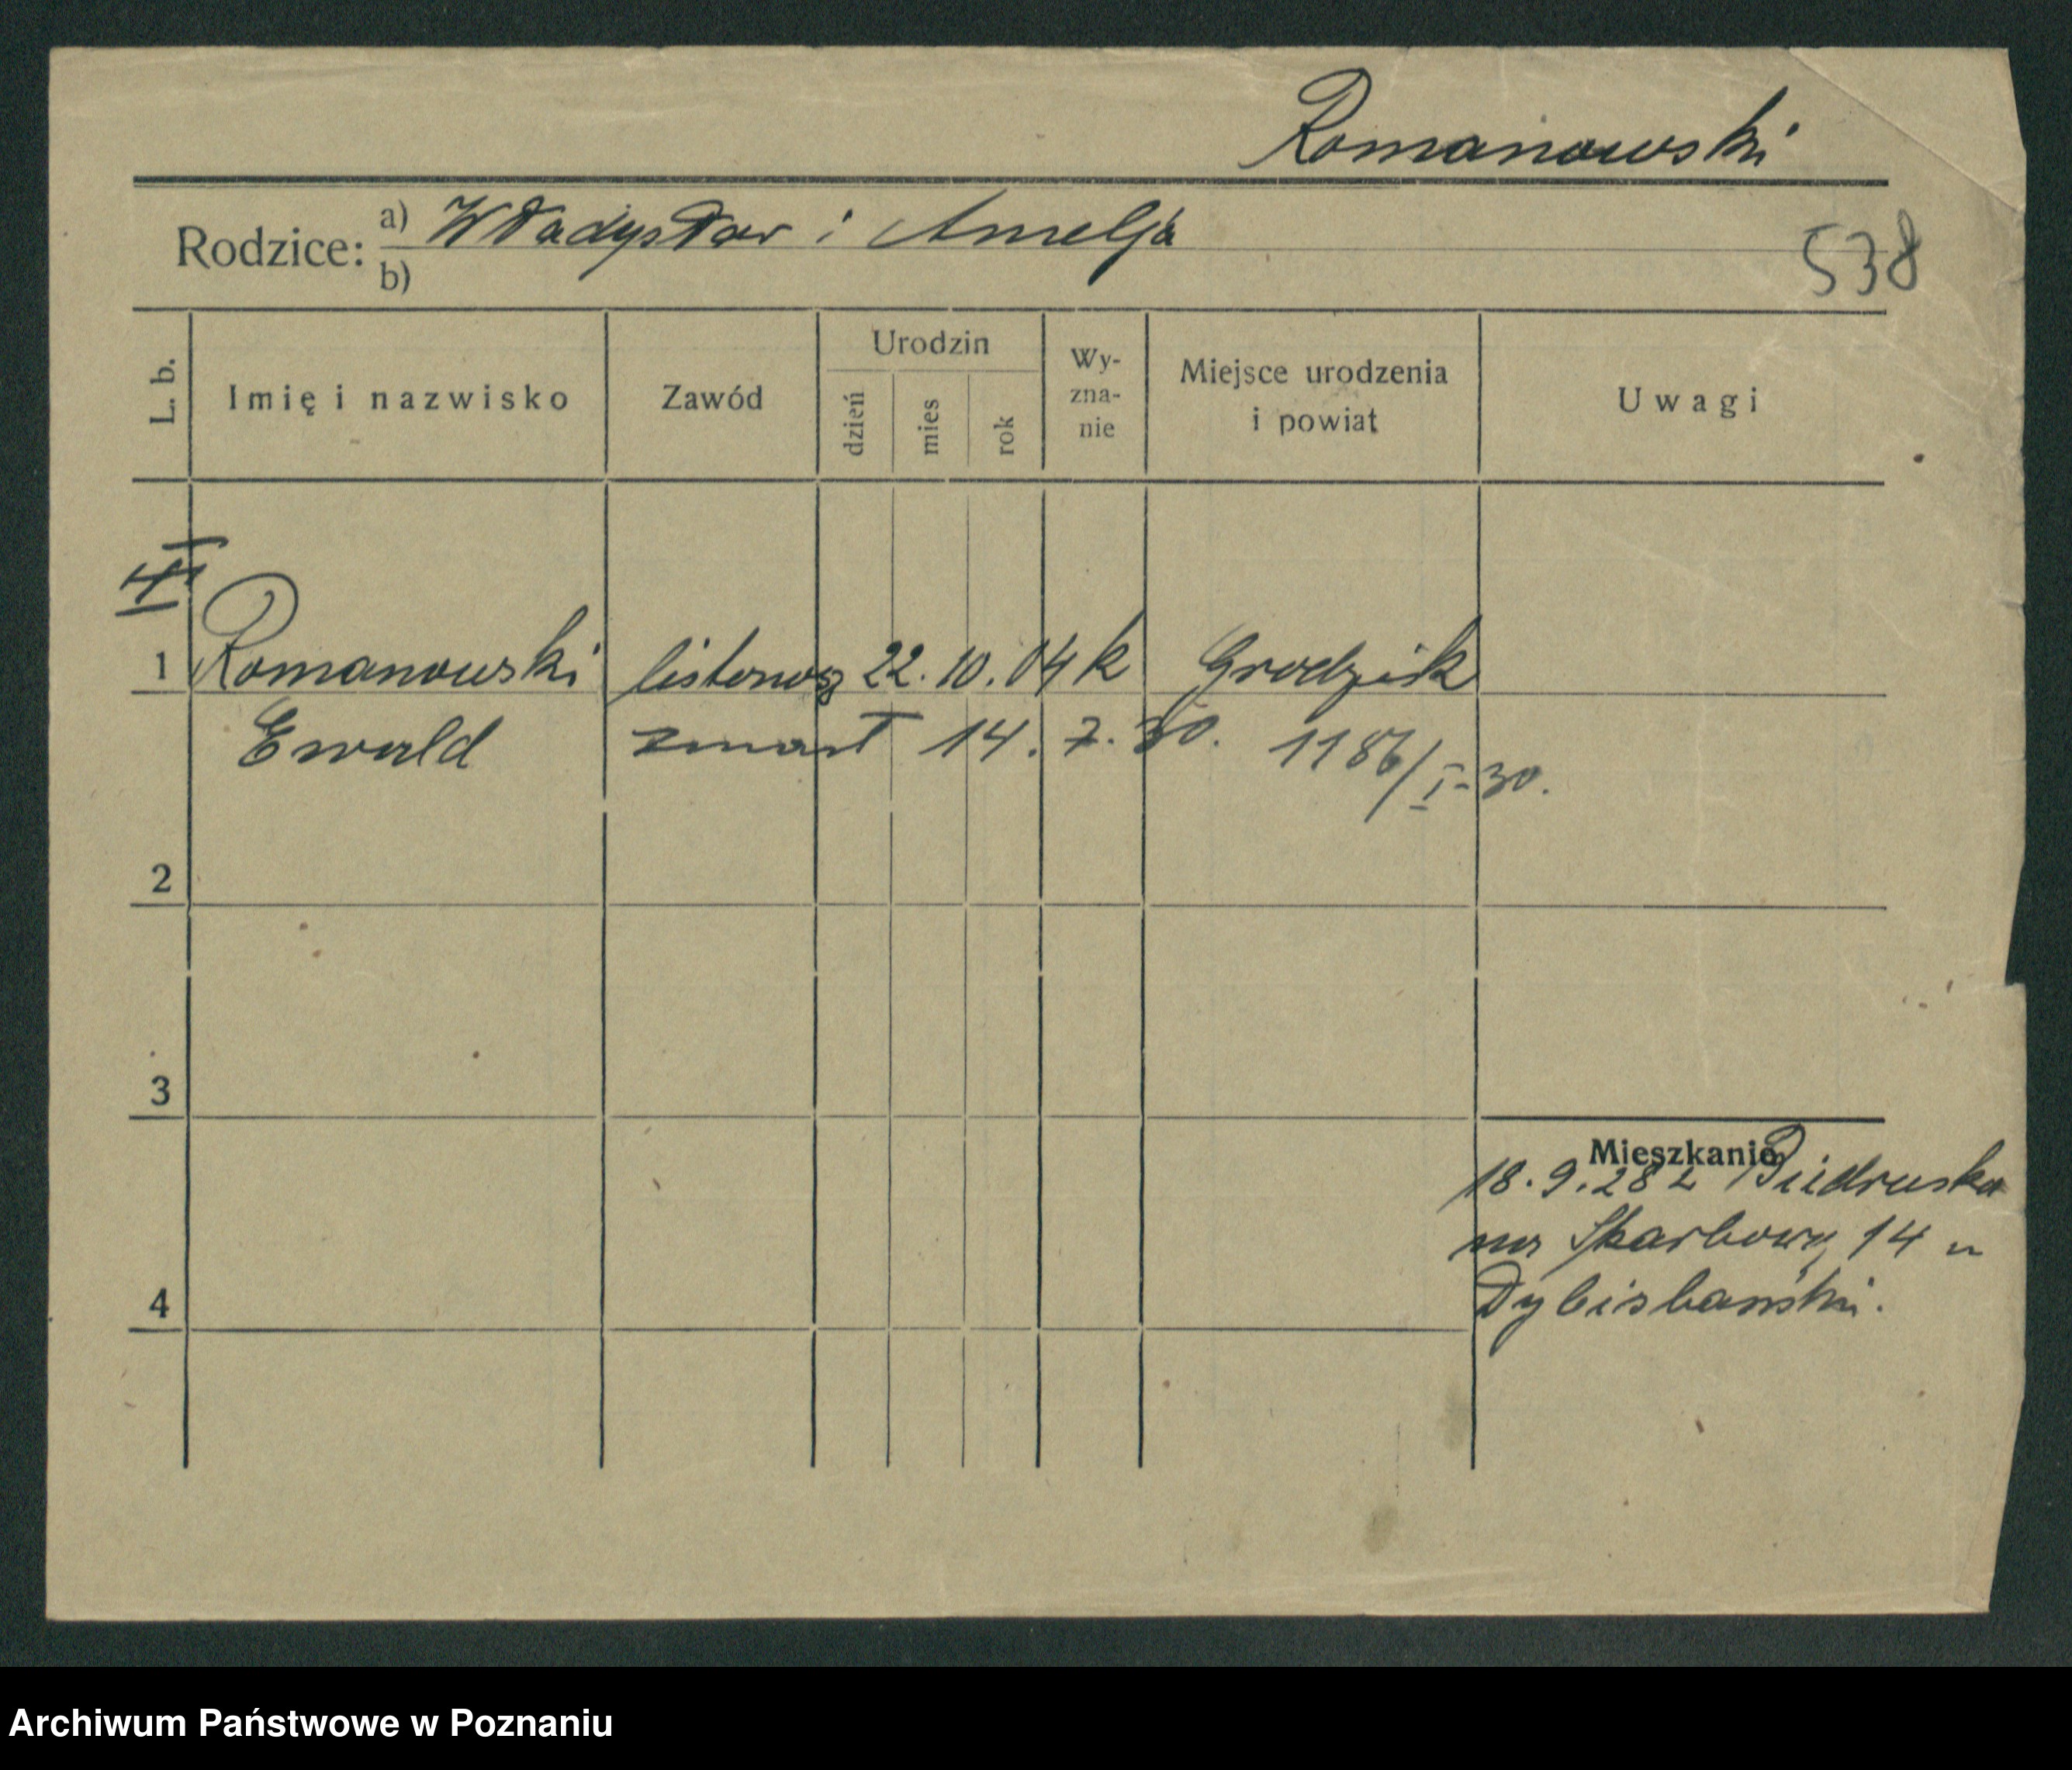 Romanowski
Rodzice: a) Władysław i Amelja
b)
538
L. b.
Imię i nazwisko
Zawód
Urodzin
dzień
mies
rok
Wy-
zna-
nie
Miejsce urodzenia
i powiat
Uwagi
1 Romanowski listonosz 22. 10. 04 k Grodzisk
Ewald zmarł 14. 7. 30. 1186/I-30.
2
3
4
Mieszkanie
18.9.28 z Biedruska
na Skarbową 14 u
Dybisbański.
Archiwum Państwowe w Poznaniu